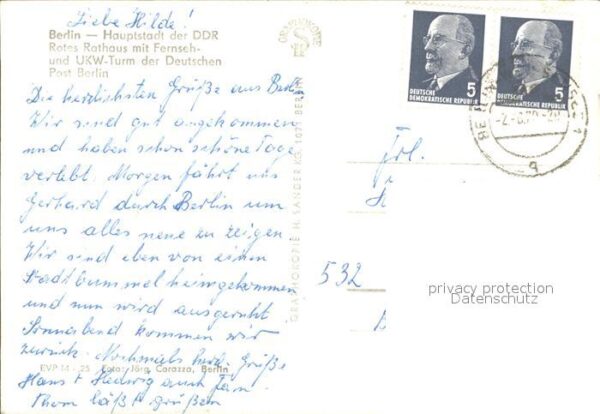 Liebe Hilde!
Berlin — Hauptstadt der DDR
Rotes Rathaus mit Fernseh-
und UKW-Turm der Deutschen
Post Berlin
Die herzlichsten Grüße aus Berlin
Wir sind gut angekommen
und haben schon schöne Tage
verlebt. Morgen fährt uns
Gerhard durch Berlin um
uns alles neue zu zeigen.
Wir sind eben von einem
Stadtbummel heimgekommen
und nun wird ausgeruht
Sonnabend kommen wir
zurück. Nochmals herzl. Grüße
Hans + Hedwig auch Fam.
Thom läßt grüßen
EVP 14 - 25 Foto: Jörg Carazza, Berlin
GRAPHOKOPIE H. SANDER KG 1071 BERLIN
GRAPHOKOPIE
5
DEUTSCHE
DEMOKRATISCHE REPUBLIK
5
DEUTSCHE
DEMOKRATISCHE REPUBLIK
Frl.
532
privacy protection
Datenschutz